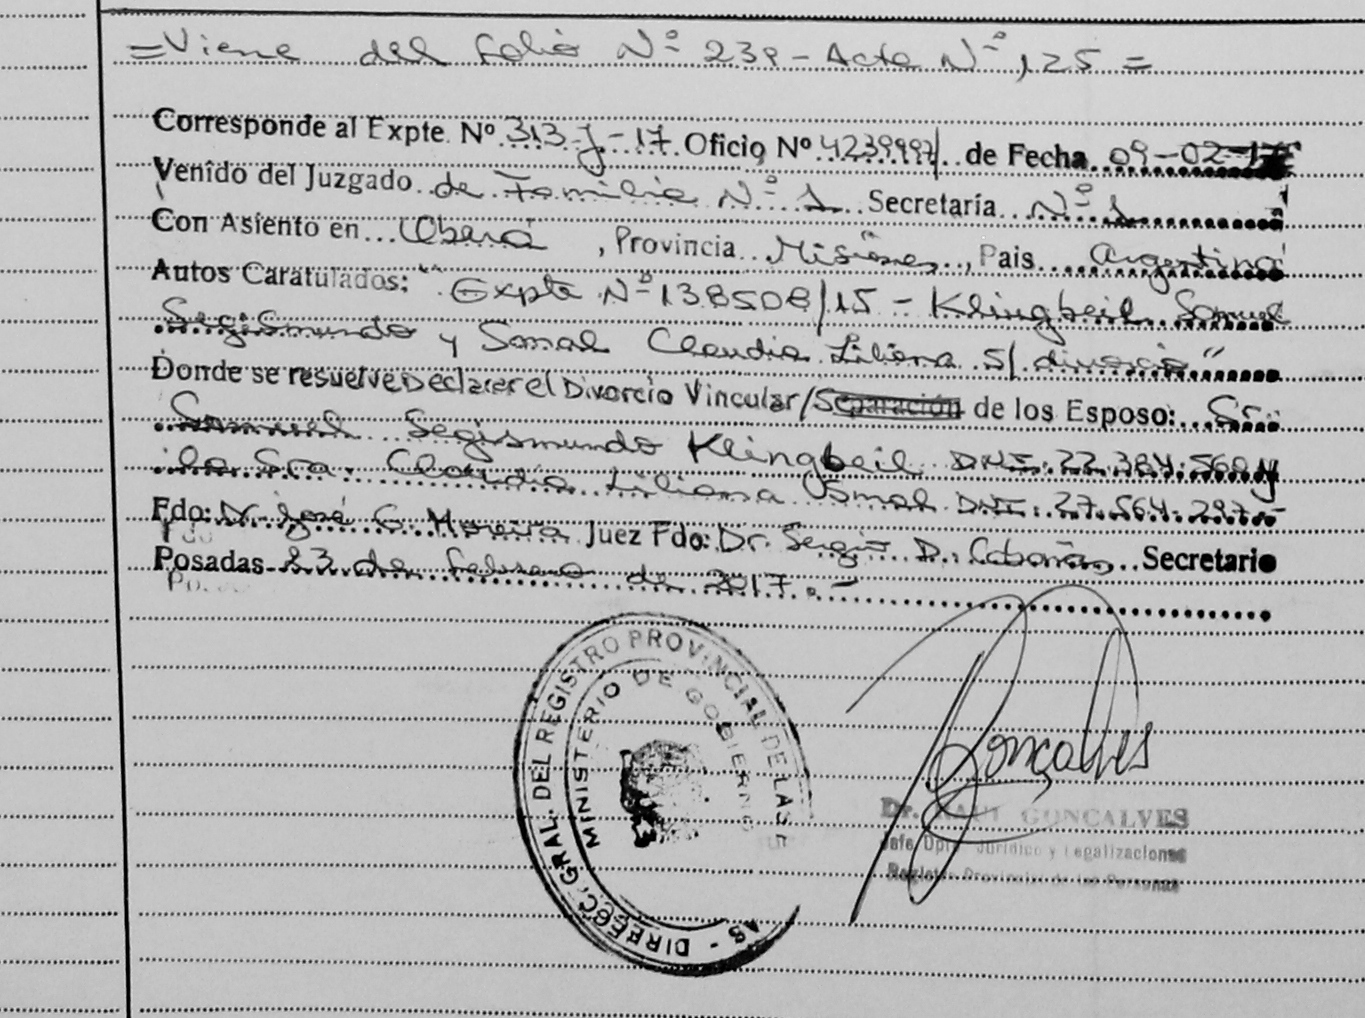 =Viene del folio Nº 239 - Acta Nº 125 =
Corresponde al Expte. Nº 313-J-17 Oficio Nº 4239997/ de Fecha 09-02-17
Venido del Juzgado de Familia Nº 1 Secretaría Nº 1
Con Asiento en Oberá, Provincia Misiones, Pais Argentina
Autos Caratulados: "Expte Nº 138508/15 - Klingbeil Samuel
Segismundo y Claudia Liliana S/ divorcio"
Donde se resuelve Declarar el Divorcio Vincular/Separación de los Esposo: Sr.
Samuel Segismundo Klingbeil DNI: 22.384.560 y
la Sra. Claudia Liliana DNI: 27.564.297.-
Fdo: Dr. José G. Moreira Juez Fdo: Dr. Sergio D. Cabañas Secretario
Posadas 23 de febrero de 2017.-
DIRECC. GRAL. DEL REGISTRO PROVINCIAL DE LAS
MINISTERIO DE GOBIERNO
Gonçalves
Dr. RAUL GONCALVES
Jefe Dpto. Jurídico y Legalizaciones
Registro Provincial de las Personas